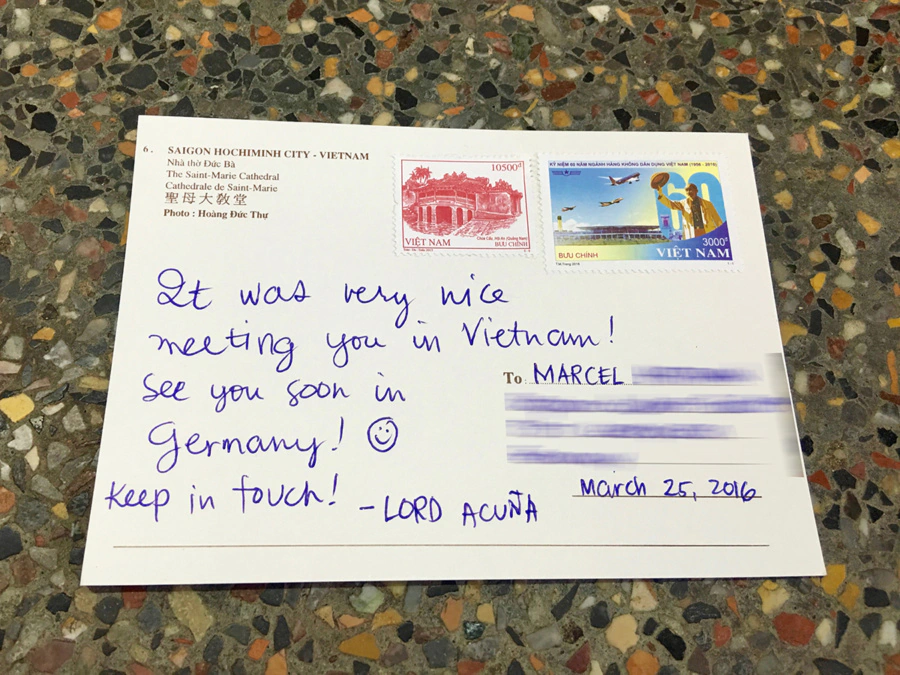 6. SAIGON HOCHIMINH CITY - VIETNAM
Nhà thờ Đức Bà
The Saint-Marie Cathedral
Cathedrale de Saint-Marie
聖母大教堂
Photo : Hoàng Đức Thự
10500đ
Chùa Cầu, Hội An (Quảng Nam)
VIỆT NAM
BƯU CHÍNH
KỶ NIỆM 60 NĂM NGÀNH HÀNG KHÔNG DÂN DỤNG VIỆT NAM (1956 - 2016)
60
3000đ
BƯU CHÍNH
VIỆT NAM
It was very nice
meeting you in Vietnam!
See you soon in
Germany! ☺
Keep in touch!
- LORD ACUÑA
To: MARCEL
March 25, 2016